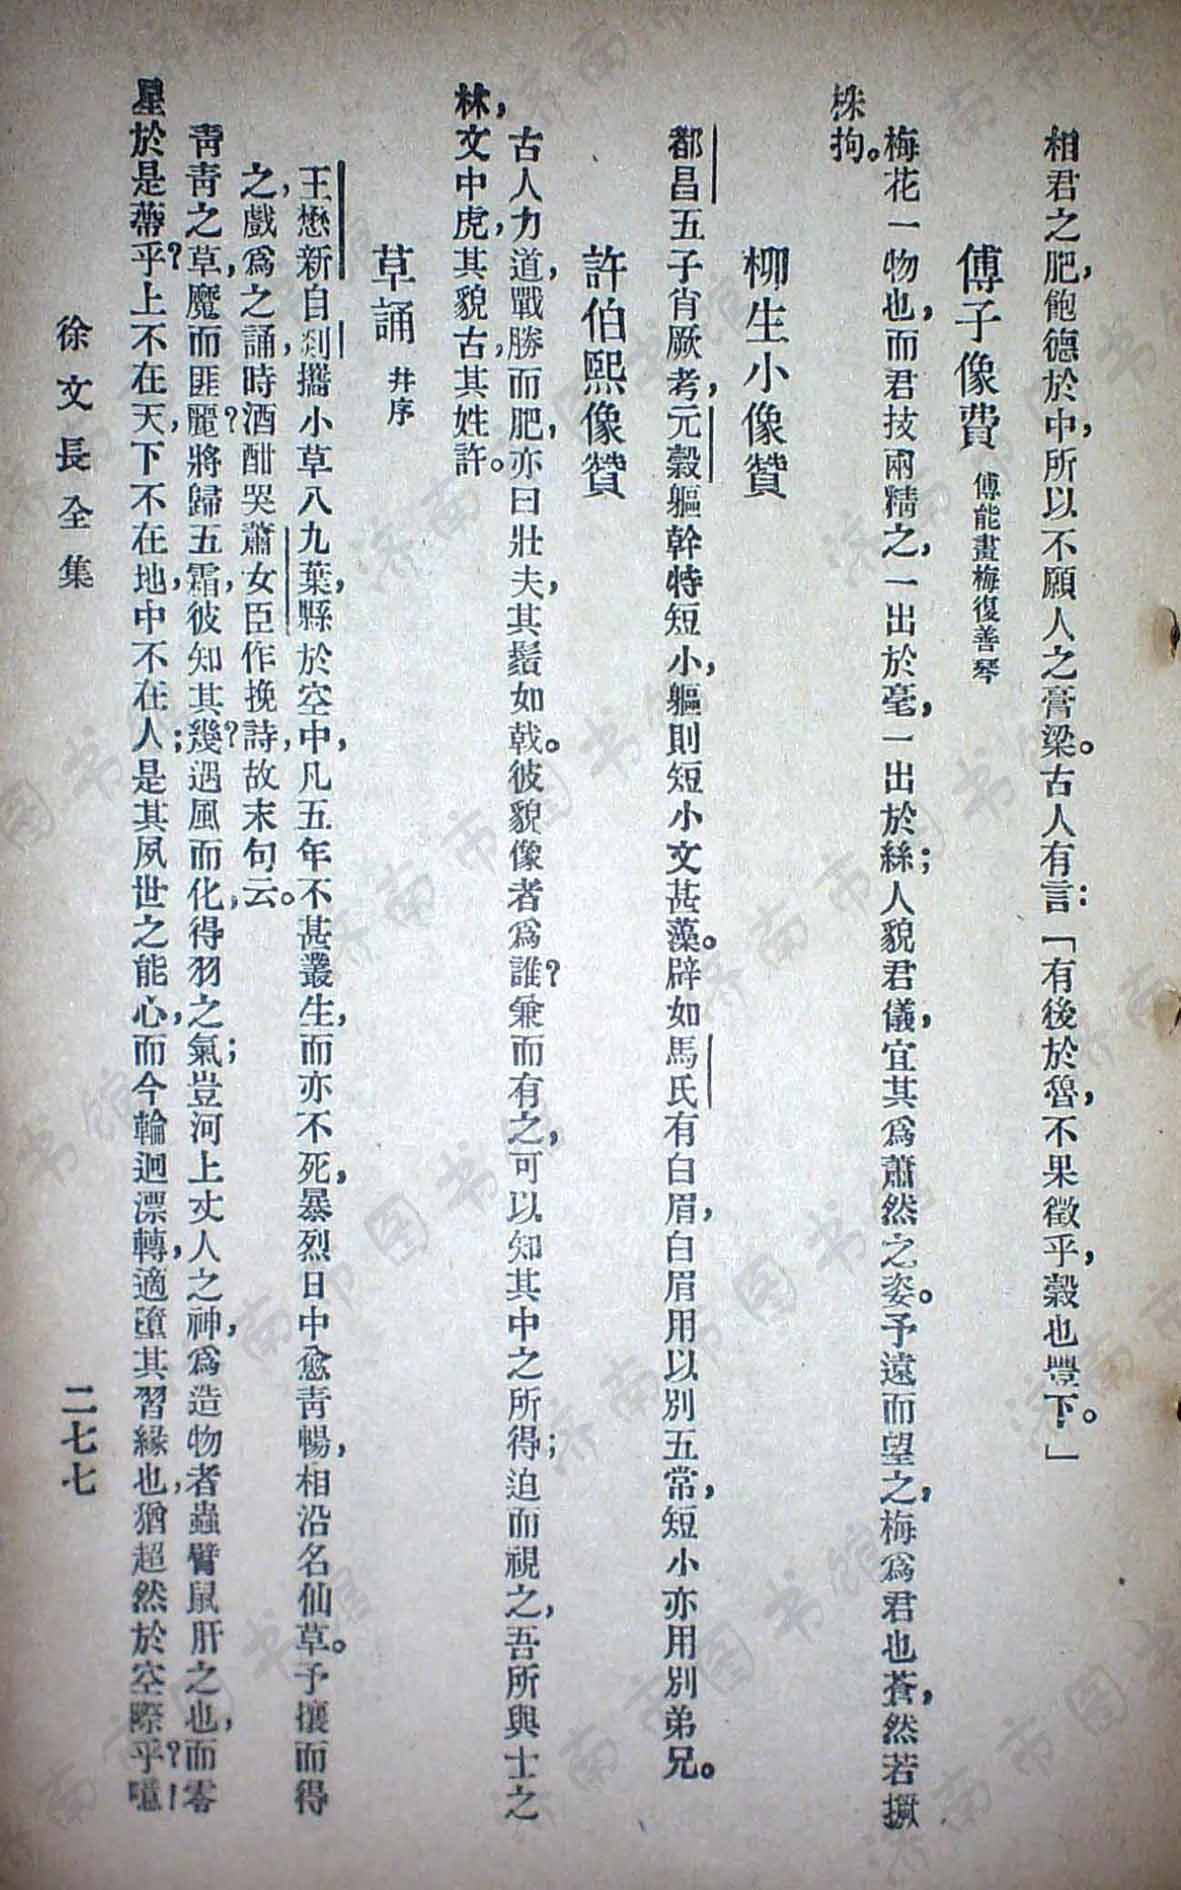 相君之肥，飽德於中，所以不願人之膏梁。古人有言：「有後於魯，不果徵乎，穀也豐下。」
傅子像費 傅能畫梅復善琴
梅花一物也，而君技兩精之，一出於毫，一出於絲；人貌君儀，宜其爲蕭然之姿。予遠而望之，梅爲君也，蒼然若撅
株拘。
柳生小像贊
都昌五子肖厥考，元穀軀幹特短小，軀則短小文甚藻。辟如馬氏有白眉，白眉用以別五常，短小亦用別弟兄。
許伯熙像贊
古人力道，戰勝而肥，亦曰壯夫，其髯如戟。彼貌像者爲誰？兼而有之，可以知其中之所得；迫而視之，吾所與士之
林，文中虎，其貌古，其姓許。
草誦 幷序
王懋新自剡攜小草八九葉，縣於空中，凡五年不甚叢生，而亦不死，暴烈日中愈靑暢，相沿名仙草。予攘而得
之，戲爲之誦，時酒酣哭蕭女臣作挽詩，故末句云。
靑靑之草，魔而匪麗？將歸五霜，彼知其幾？遇風而化，得羽之氣；豈河上丈人之神，爲造物者蟲臂鼠肝之也，而零
星於是蔕乎？上不在天，下不在地，中不在人；是其夙世之能心，而今輪迴漂轉，適墮其習緣也，猶超然於空際乎？噫！
徐文長全集
二七七
濟南市图书館